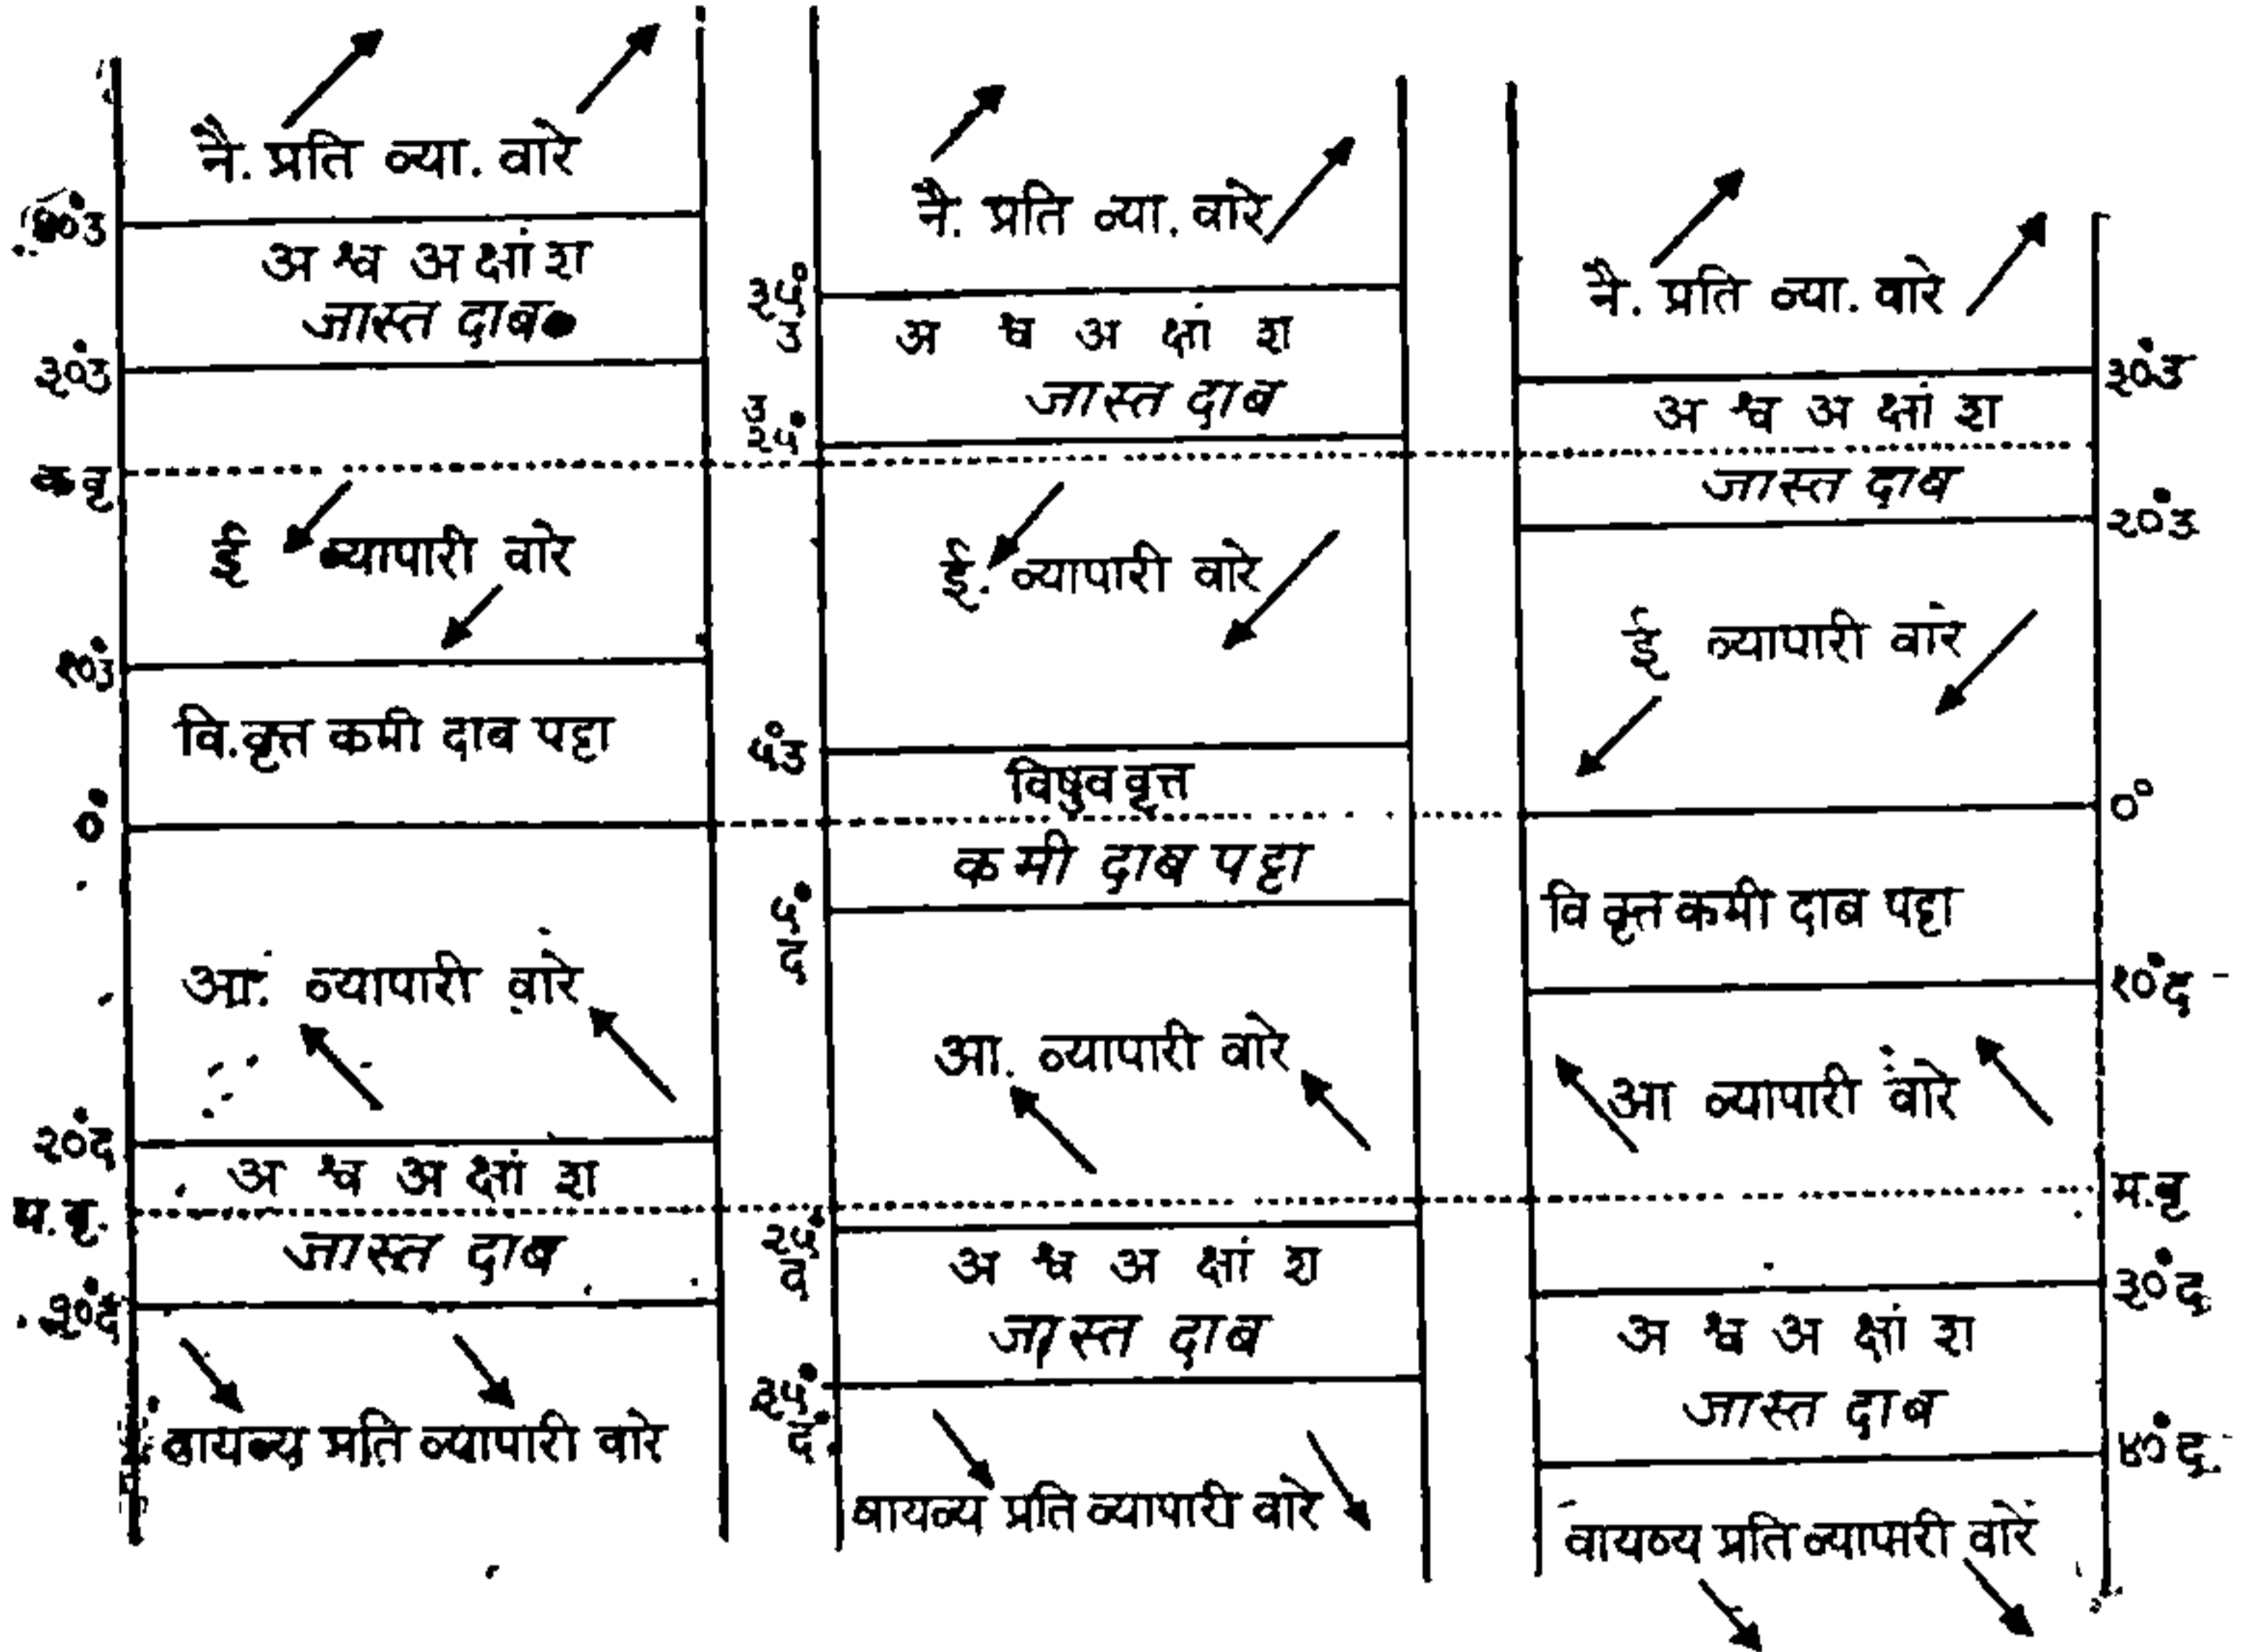 नै. प्रति व्या. वारे
अ श्व अ क्षां श
जास्त दाब
३०°उ
क वृ
ई व्यापारी वारे
१०°उ
वि.वृत्त कमी दाब पट्टा
०°
आ. व्यापारी वारे
२०°द
अ श्व अ क्षां श
म.वृ.
जास्त दाब
३०°द
वायव्य प्रति व्यापारी वारे
नै. प्रति व्या. वारे
३५°
उ
अ श्व अ क्षां श
जास्त दाब
उ
२५°
ई. व्यापारी वारे
५°उ
विषुव वृत्त
कमी दाब पट्टा
५°
द
आ. व्यापारी वारे
२५°
द
अ श्व अ क्षां श
जास्त दाब
३५°
द.
वायव्य प्रति व्यापारी वारे
नै. प्रति व्या. वारे
३०°उ
अ श्व अ क्षां श
जास्त दाब
२०°उ
ई व्यापारी वारे
०°
वि वृत्त कमी दाब पट्टा
१०°द
आ व्यापारी वारे
म.वृ
३०°द
अ श्व अ क्षां श
जास्त दाब
४०°द.
वायव्य प्रति व्यापारी वारे